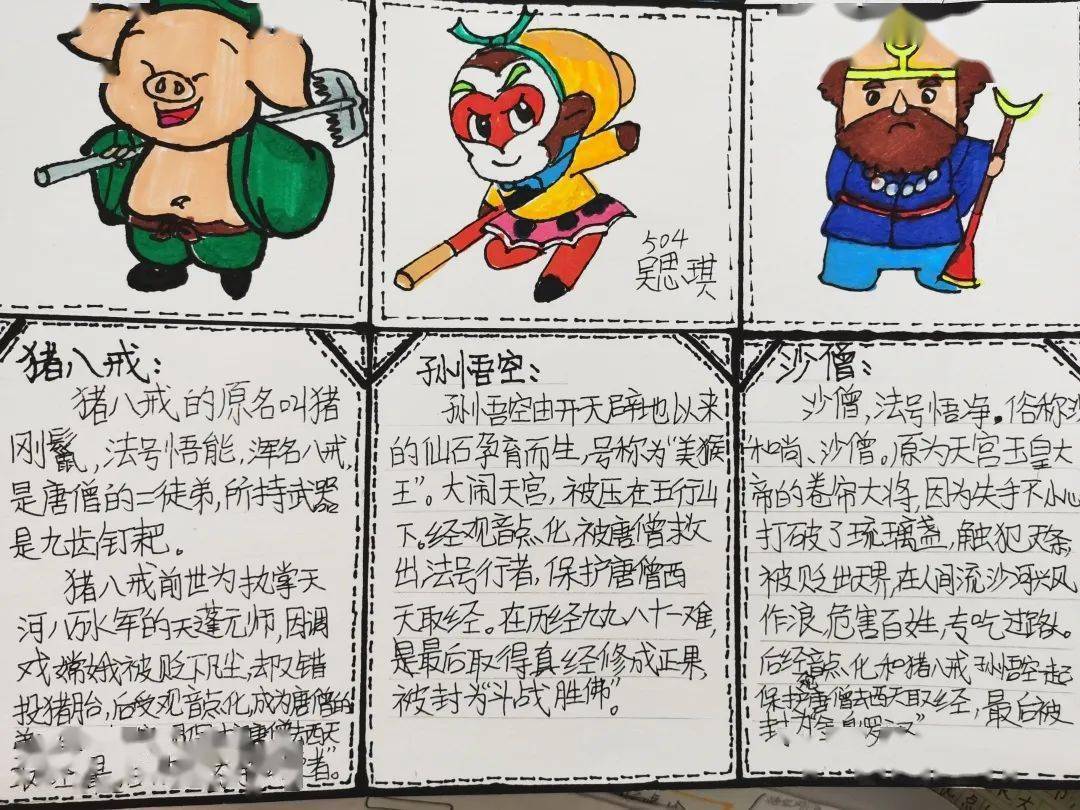 504
吴思琪
猪八戒：
猪八戒的原名叫猪
刚鬣，法号悟能，浑名八戒，
是唐僧的二徒弟，所持武器
是九齿钉耙。
猪八戒前世为执掌天
河八万水军的天蓬元师，因调
戏嫦娥被贬下凡尘，却又错
投猪胎，后受观音点化，成为唐僧的
唐僧去西天
者。
孙悟空：
孙悟空由开天辟地以来
的仙石孕育而生，号称为“美猴
王”。大闹天宫，被压在五行山
下。经观音点化，被唐僧救
出，法号行者，保护唐僧西
天取经。在历经九九八十一难，
是最后取得真经修成正果，
被封为“斗战胜佛”。
沙僧：
沙僧，法号悟净。俗称沙
和尚、沙僧。原为天宫玉皇大
帝的卷帘大将，因为失手不小心
打破了琉璃盏，触犯天条，
被贬出天界，在人间流沙河兴风
作浪，危害百姓，专吃过路人。
后经观音点化，和猪八戒孙悟空一起
保护唐僧去西天取经，最后被
封为金身罗汉”